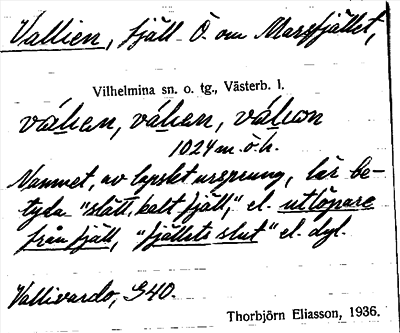 Vallien, fjäll Ö. om Marsfjället,
Vilhelmina sn. o. tg., Västerb. l.
váhen, váhen, váhon
1024 m. ö. h.
Namnet, av lapskt ursprung, lär be-
tyda "slätt, kalt fjäll," el. utlöpare
från fjäll, "fjällets slut" el. dyl.
Vallivardo, G40.
Thorbjörn Eliasson, 1936.